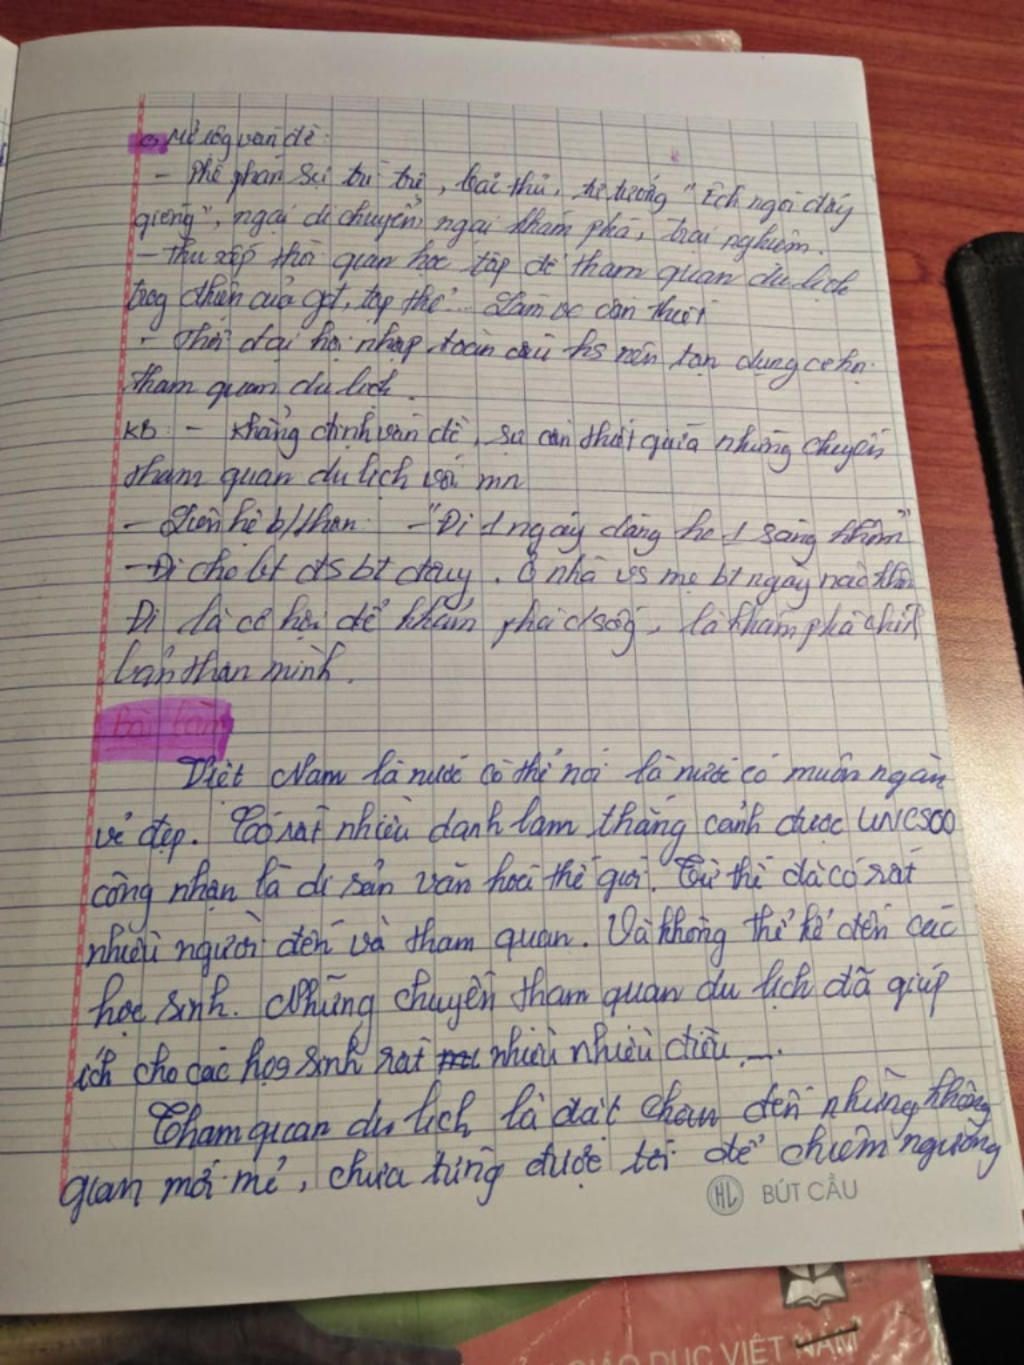 Mở rộng vấn đề:
- Phê phán sự trì trệ, , tư tưởng "Ếch ngồi đáy
giếng", ngại di chuyển, ngại khám phá, trải nghiệm.
- Thu xếp thời gian học tập để tham quan du lịch
trog của gđ, tập thể... Làm vc cần thiết
- Thời đại hội nhập toàn cầu hs nên tận dụng
tham quan du lịch.
KB: - Khẳng định vấn đề, sự cần thiết của những chuyến
tham quan du lịch với mn
- Liên hệ b/thân: - "Đi 1 ngày đàng học 1 sàng khôn"
- Đi cho bt đó bt đây. Ở nhà vs mẹ bt ngày nào khôn
Đi là cơ hội để khám phá c/sống, là khám phá chính
bản thân mình.
Bài làm
Việt Nam là nước có thể nói là nước có muôn ngàn
vẻ đẹp. Có rất nhiều danh lam thắng cảnh được UNCSOO
công nhận là di sản văn hoá thế giới. Từ thế đã có rất
nhiều người đến và tham quan. Và không thể kể đến các
học sinh. Những chuyến tham quan du lịch đã giúp
ích cho các học sinh rất nhiều nhiều điều...
Tham quan du lịch là đặt chân đến những không
gian mới mẻ, chưa từng được tới để chiêm ngưỡng
HL BÚT CẦU
GIÁO DỤC VIỆT NAM